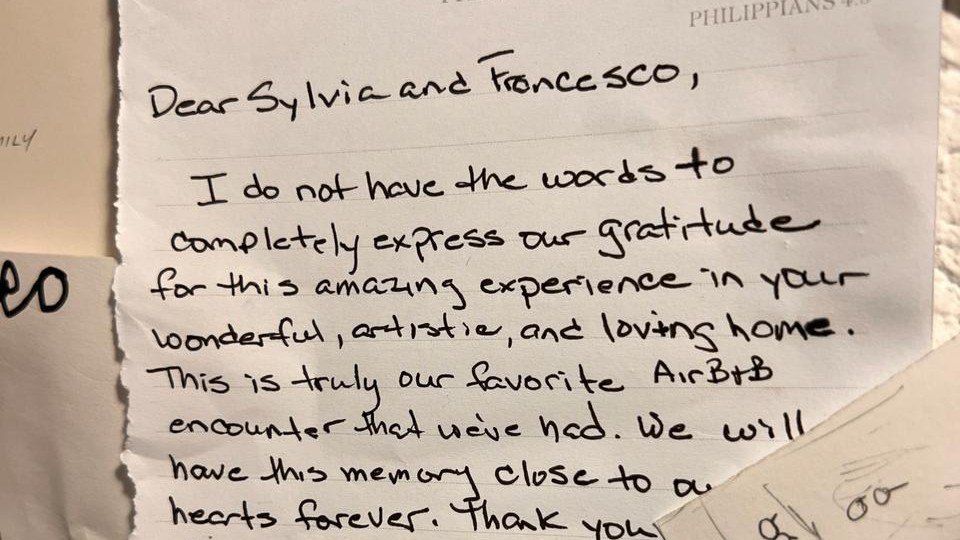 PHILIPPIANS 4:
Dear Sylvia and Francesco,
I do not have the words to
completely express our gratitude
for this amazing experience in your
wonderful, artistic, and loving home.
This is truly our favorite AirB+B
encounter that we've had. We will
have this memory close to ou
hearts forever. Thank you
MILY
eo